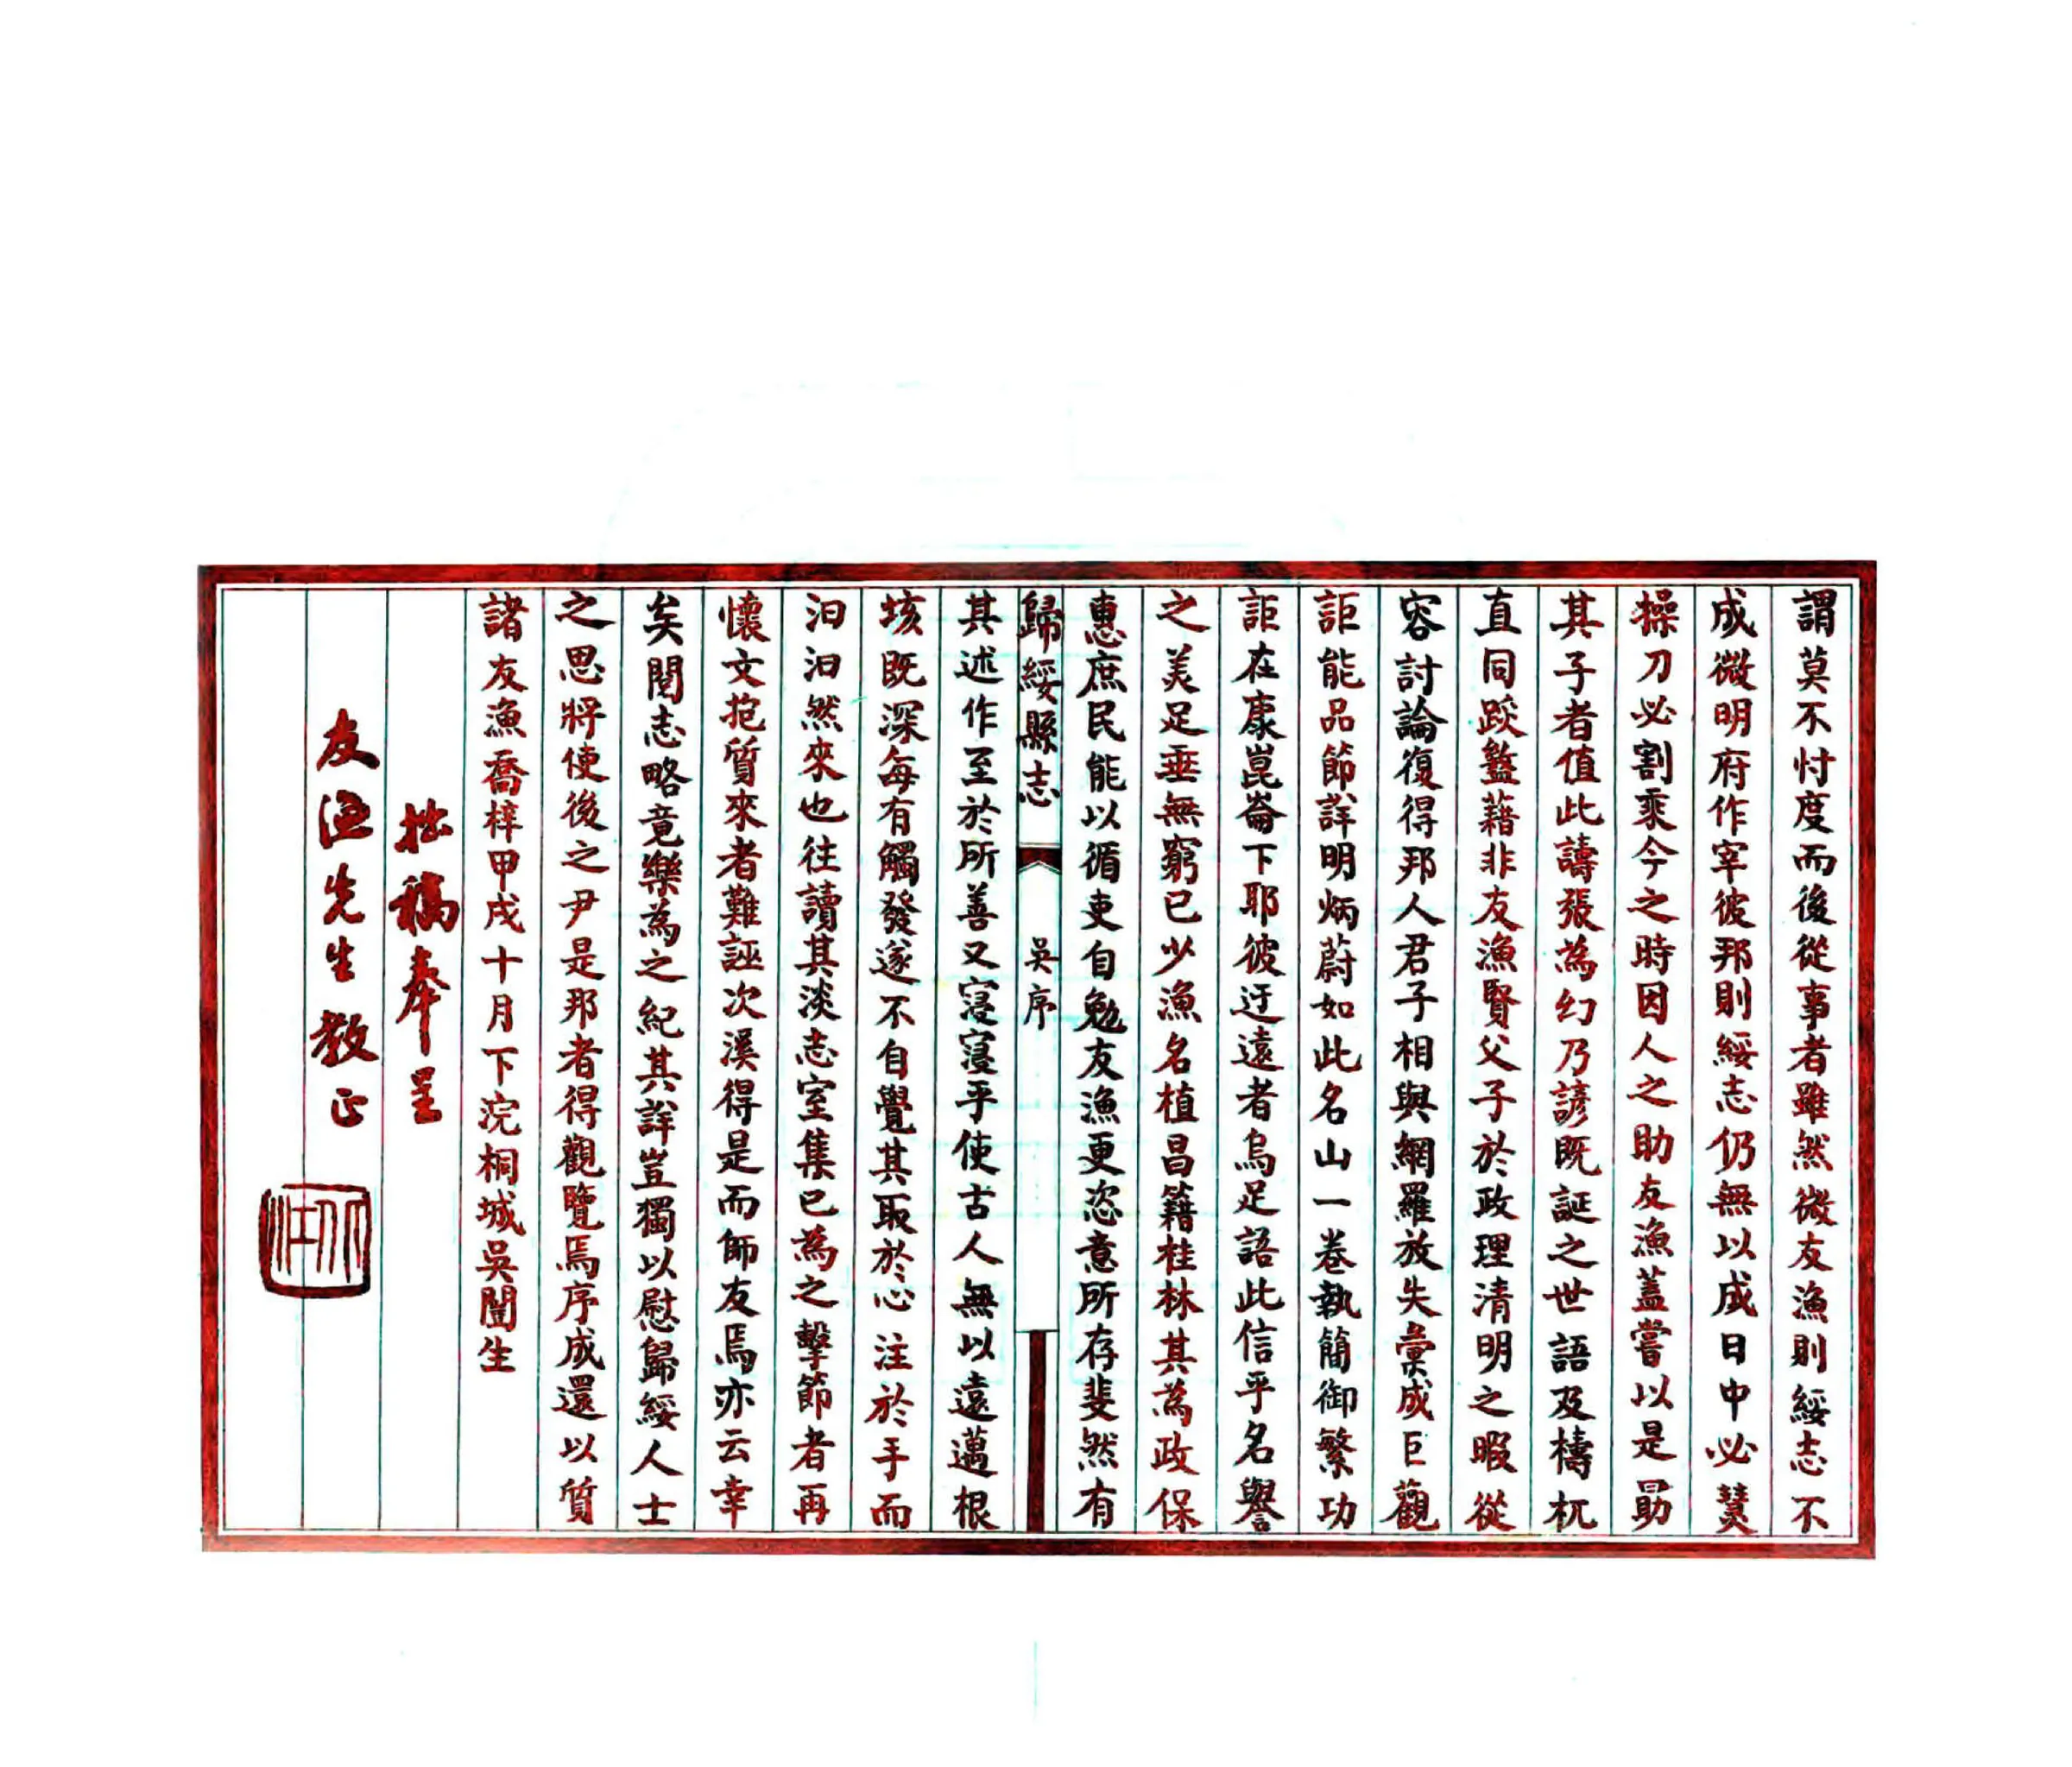 謂莫不忖度而後從事者雖然微友漁則綏志不
成微明府作宰彼邦則綏志仍無以成日中必熭
操刀必割乘今之時因人之助友漁蓋嘗以是勗
其子者值此譸張為幻乃諺既誕之世語及檮杌
直同踸𥂕藉非友漁賢父子於政理清明之暇從
容討論復得邦人君子相與網羅放失彙成巨觀
詎能品節詳明炳蔚如此名山一卷執簡御繁功
詎在康崑崙下耶彼迂遠者烏足語此信乎名譽
之美足垂無窮已少漁名植昌籍桂林其為政保
惠庶民能以循吏自勉友漁更恣意所存斐然有
歸綏縣志 吳序
其述作至於所善又寖寖乎使古人無以遠邁根
垓既深每有觸發遂不自覺其取於心注於手而
汩汩然來也往讀其淡志室集已為之擊節者再
懷文抱質來者難誣次溪得是而師友焉亦云幸
矣閱志略竟樂為之紀其詳豈獨以慰歸綏人士
之思將使後之尹是那者得觀覽焉序成還以質
諸友漁喬梓甲戌十月下浣桐城吳闓生
拙稿奉呈
友漁先生教正